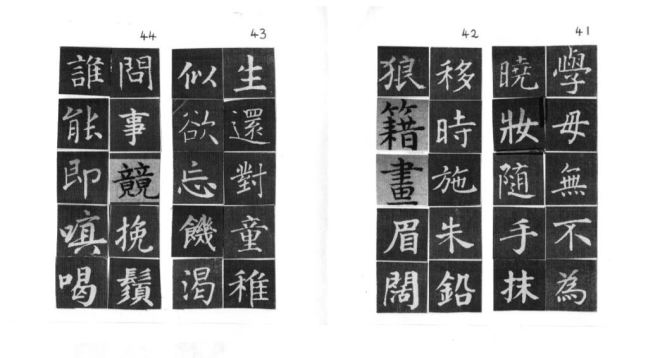 41
學母無不為
曉妝随手抹
42
移時施朱鉛
狼籍畫眉闊
43
生還對童稚
似欲忘饑渴
44
問事競挽鬚
誰能即嗔喝